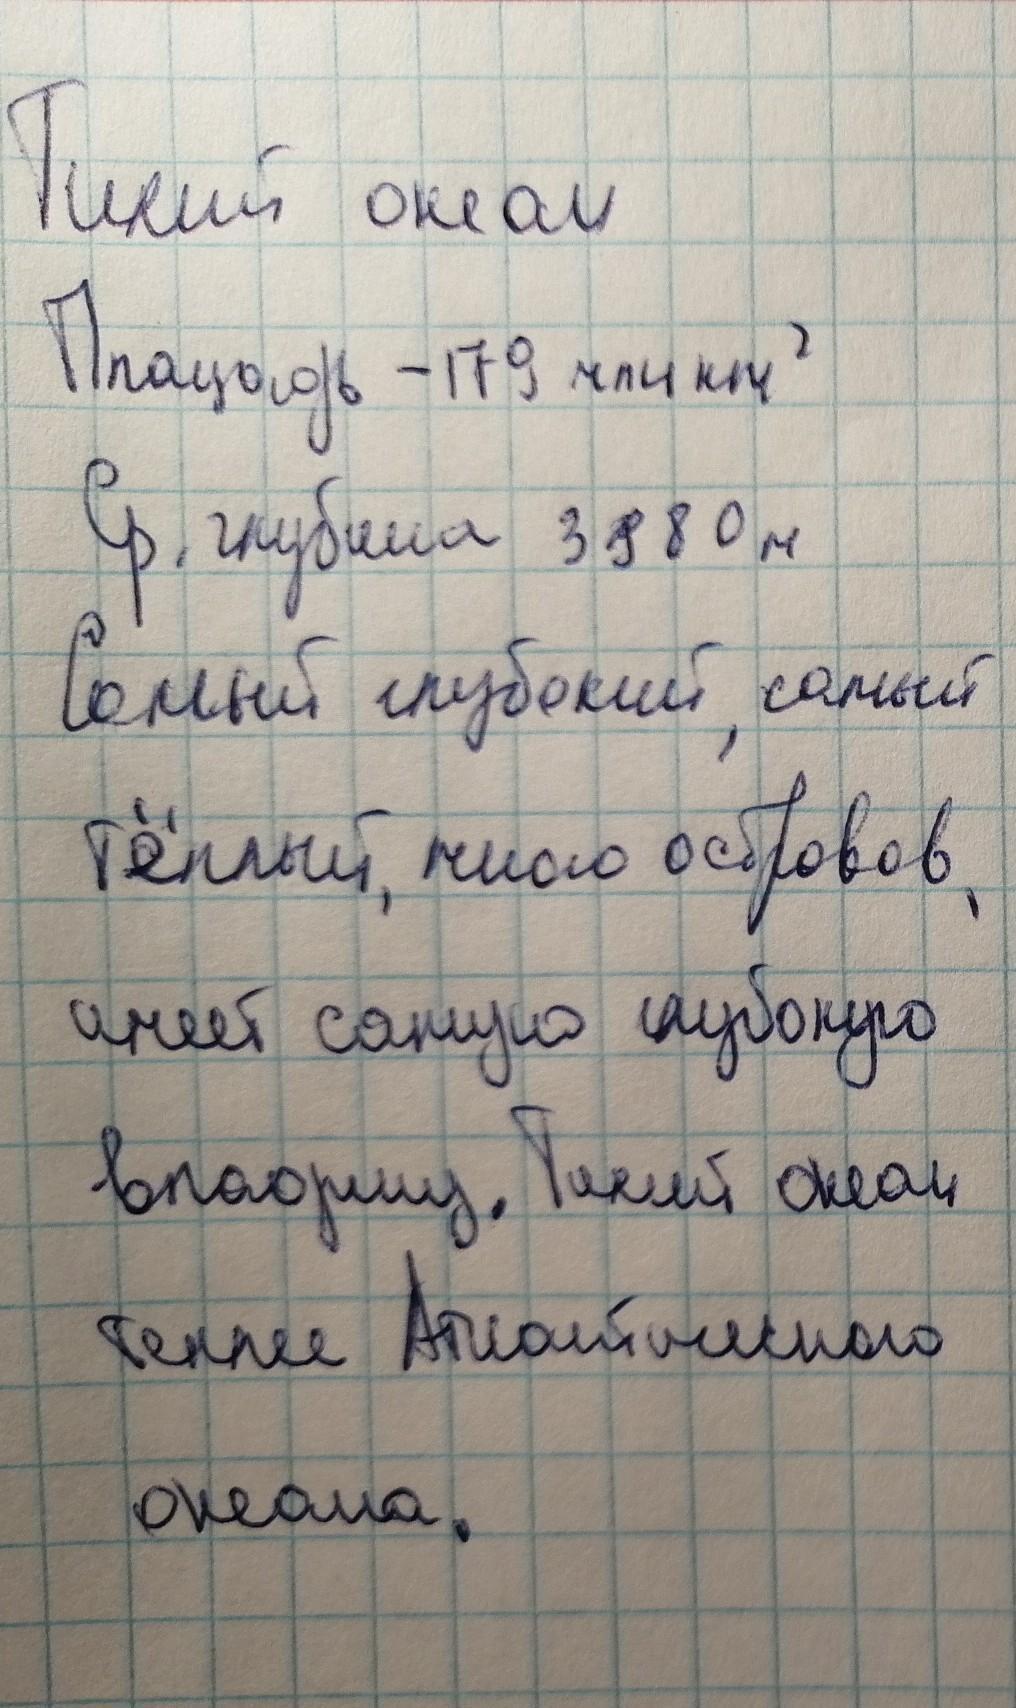 Тихий океан
Площадь - 179 млн км²
Ср. глубина 3980 м
Самый глубокий, самый
тёплый, число островов,
имеет самую глубокую
впадину. Тихий океан
теплее Атлантического
океана.